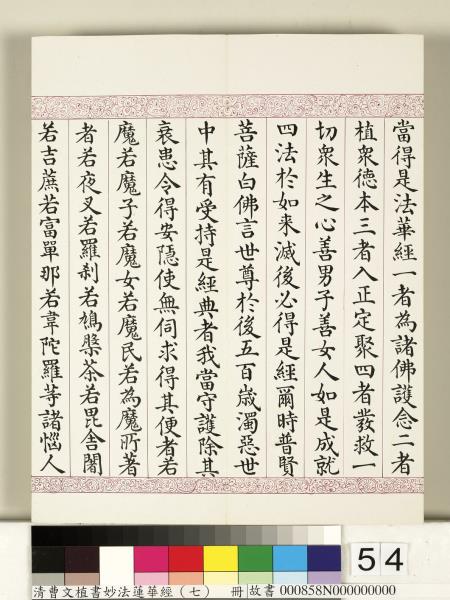 當得是法華經一者為諸佛護念二者
植衆德本三者入正定聚四者發救一
切衆生之心善男子善女人如是成就
四法於如来滅後必得是經爾時普賢
菩薩白佛言世尊於後五百歲濁惡世
中其有受持是經典者我當守護除其
衰患令得安隱使無伺求得其便者若
魔若魔子若魔女若魔民若為魔所著
者若夜叉若羅刹若鳩槃茶若毘舍闍
若吉蔗若富單那若韋陀羅等諸惱人
54
清曹文植書妙法蓮華經(七) 冊 故書 000858N000000000